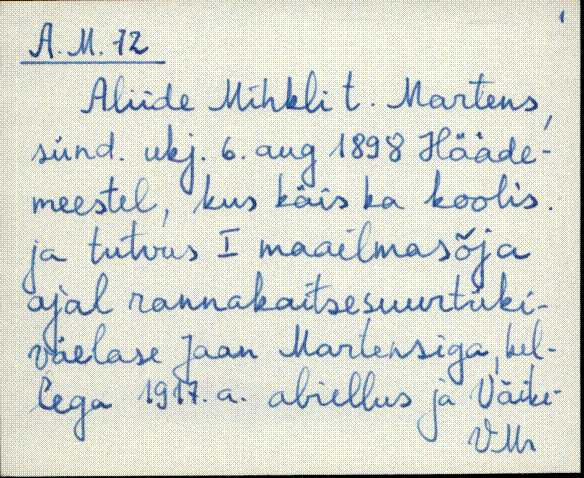 1
A.M. 72
Aliide Mihkli t. Martens,
sünd. ukj. 6. aug 1898 Hääde-
meestel, kus käis ka koolis.
ja tutvus I maailmasõja
ajal rannakaitsesuurtüki-
väelase Jaan Martensiga, kel-
lega 1917. a. abiellus ja Väike-
VMr